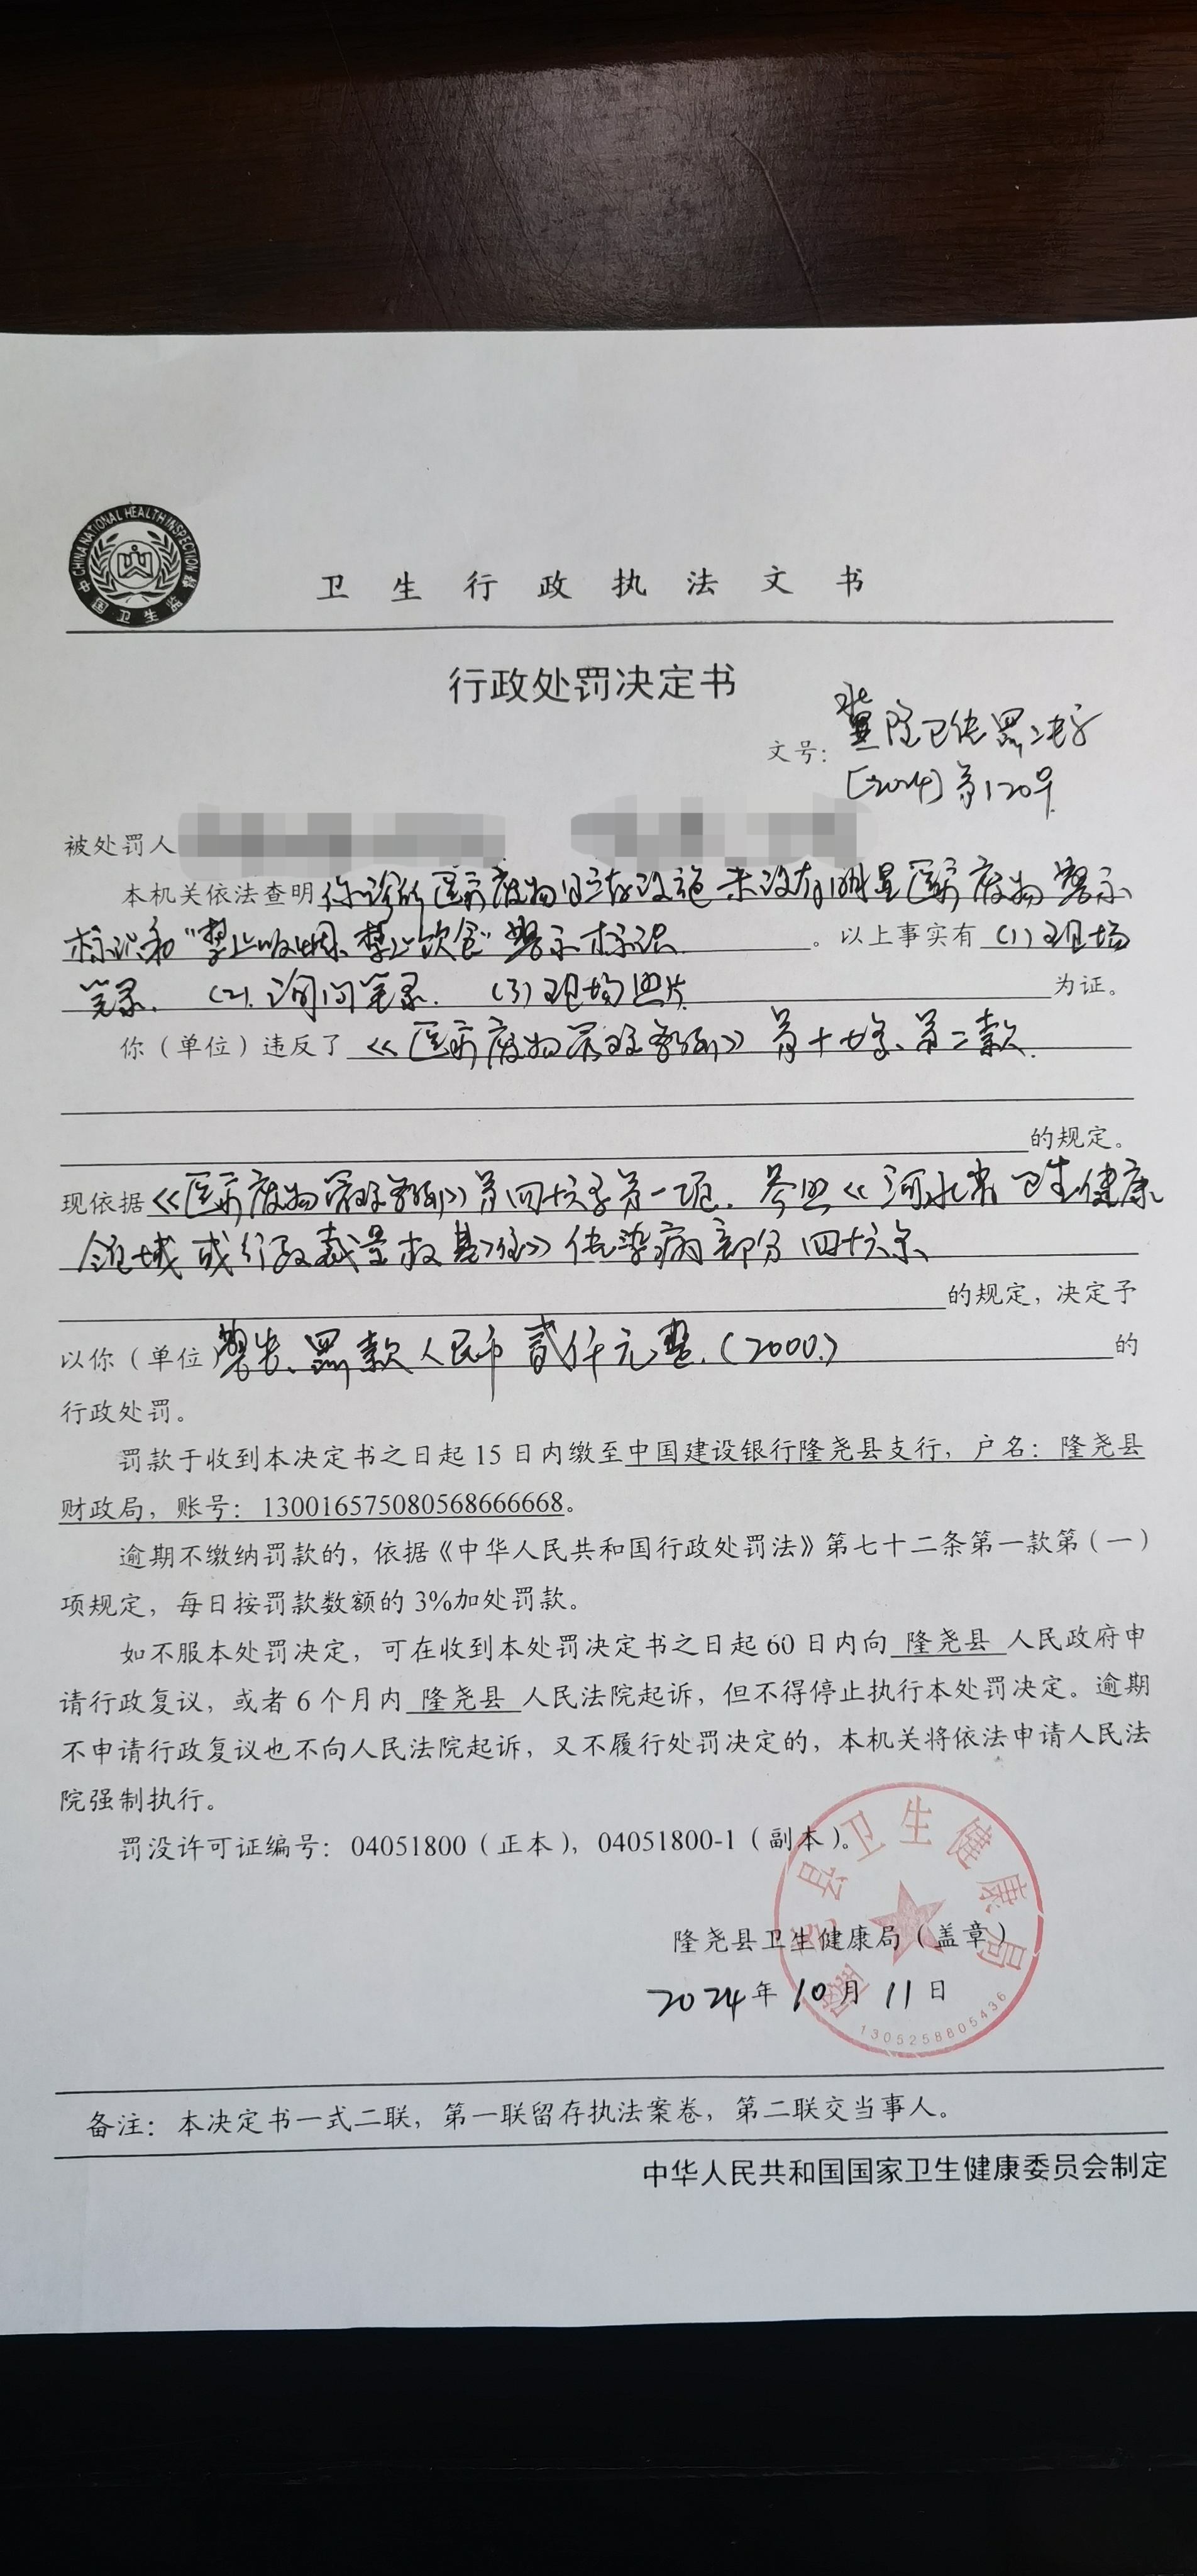 CHINA NATIONAL HEALTH INSPECTION
中国卫生监督
卫生行政执法文书
行政处罚决定书
文号：冀隆卫传罚决字
[2024]第120号
被处罚人
本机关依法查明你诊所医疗废物贮存设施未设有明显医疗废物警示
标识和“禁止吸烟、禁止饮食”警示标识。以上事实有(1)现场
笔录.(2).询问笔录.(3)现场照片为证。
你（单位）违反了《医疗废物管理条例》第十七条、第二款.
的规定。
现依据《医疗废物管理条例》第四十六条第一项.参照《河北省卫生健康
领域 行政裁量权基准》传染病部分四十六条
的规定，决定予
以你（单位）警告、罚款人民币贰仟元整.(2000.)的
行政处罚。
罚款于收到本决定书之日起15日内缴至中国建设银行隆尧县支行，户名：隆尧县
财政局，账号：13001657508056866668。
逾期不缴纳罚款的，依据《中华人民共和国行政处罚法》第七十二条第一款第（一）
项规定，每日按罚款数额的3%加处罚款。
如不服本处罚决定，可在收到本处罚决定书之日起60日内向 隆尧县 人民政府申
请行政复议，或者6个月内 隆尧县 人民法院起诉，但不得停止执行本处罚决定。逾期
不申请行政复议也不向人民法院起诉，又不履行处罚决定的，本机关将依法申请人民法
院强制执行。
罚没许可证编号：04051800（正本），04051800-1（副本）。
隆尧县卫生健康局（盖章）
2024年10月11日
隆尧县卫生健康局
1305258805436
备注：本决定书一式二联，第一联留存执法案卷，第二联交当事人。
中华人民共和国国家卫生健康委员会制定